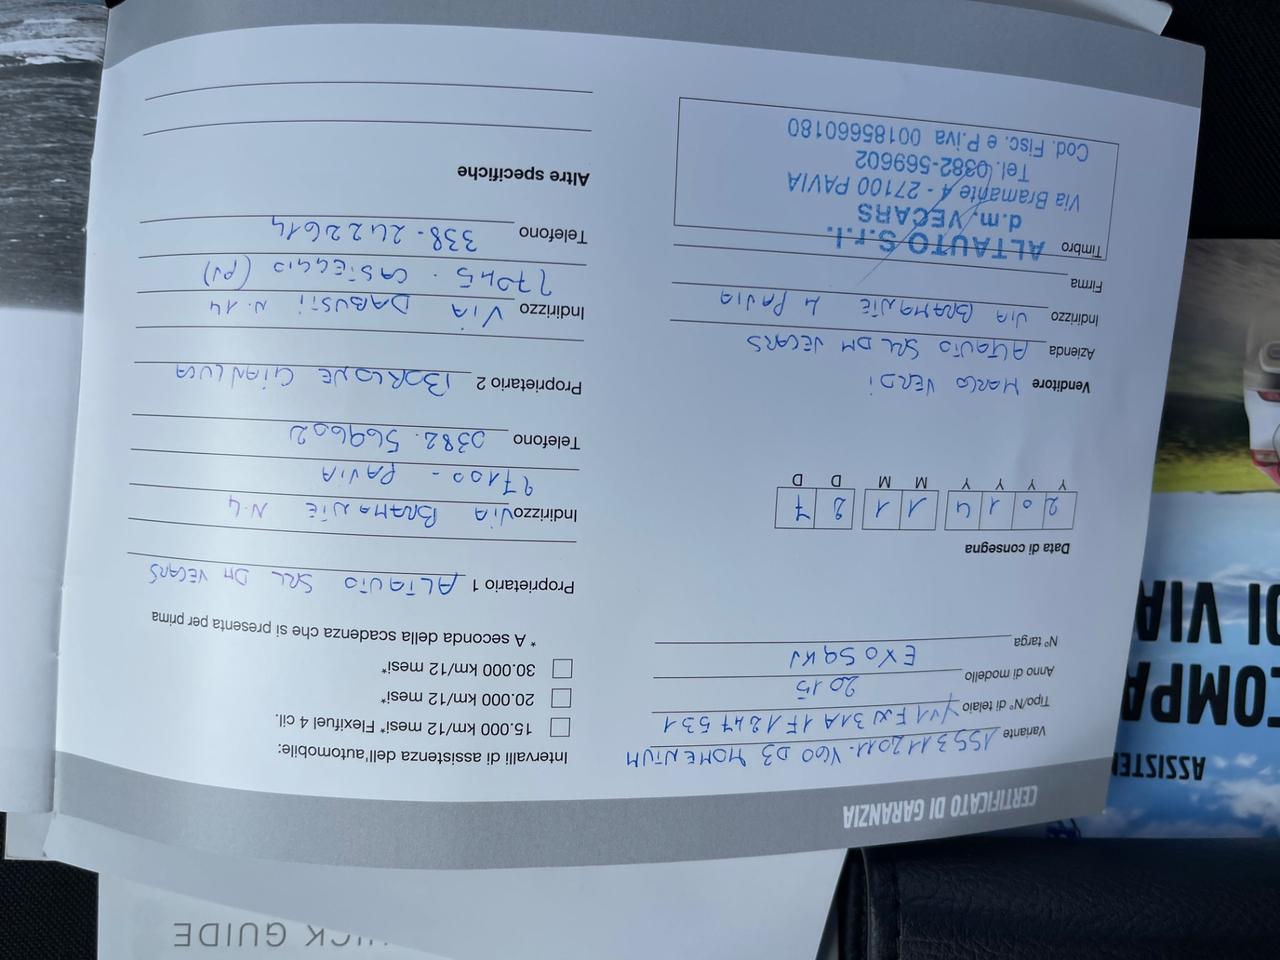 CERTIFICATO DI GARANZIA
Variante 155311201A. V60 D3 MOMENTUM
Tipo/N° di telaio YV1FW31A1F1247531
Anno di modello 2015
N° targa EX059KW
Data di consegna
2 0 1 4 1 1 2 7
Y Y Y Y M M D D
Venditore MARCO VERDI
Azienda ALTAUTO SRL DM VECARS
Indirizzo VIA BRAMANTE 4 PAVIA
Firma
Timbro
ALTAUTO S.r.l.
d.m. VECARS
Via Bramante 4 - 27100 PAVIA
Tel. 0382-569602
Cod. Fisc. e P.iva 00185660180
Intervalli di assistenza dell'automobile:
15.000 km/12 mesi* Flexifuel 4 cil.
20.000 km/12 mesi*
30.000 km/12 mesi*
* A seconda della scadenza che si presenta per prima
Proprietario 1 ALTAUTO SRL DM VECARS
Indirizzo VIA BRAMANTE N.4
27100 - PAVIA
Telefono 0382.569602
Proprietario 2 BORLONE GIANLUCA
Indirizzo VIA DABUSTI N.14
27045 - CASTEGGIO (PV)
Telefono 338-2422614
Altre specifiche
GUIDE
ASSISTEN
COMPA
DI VIA